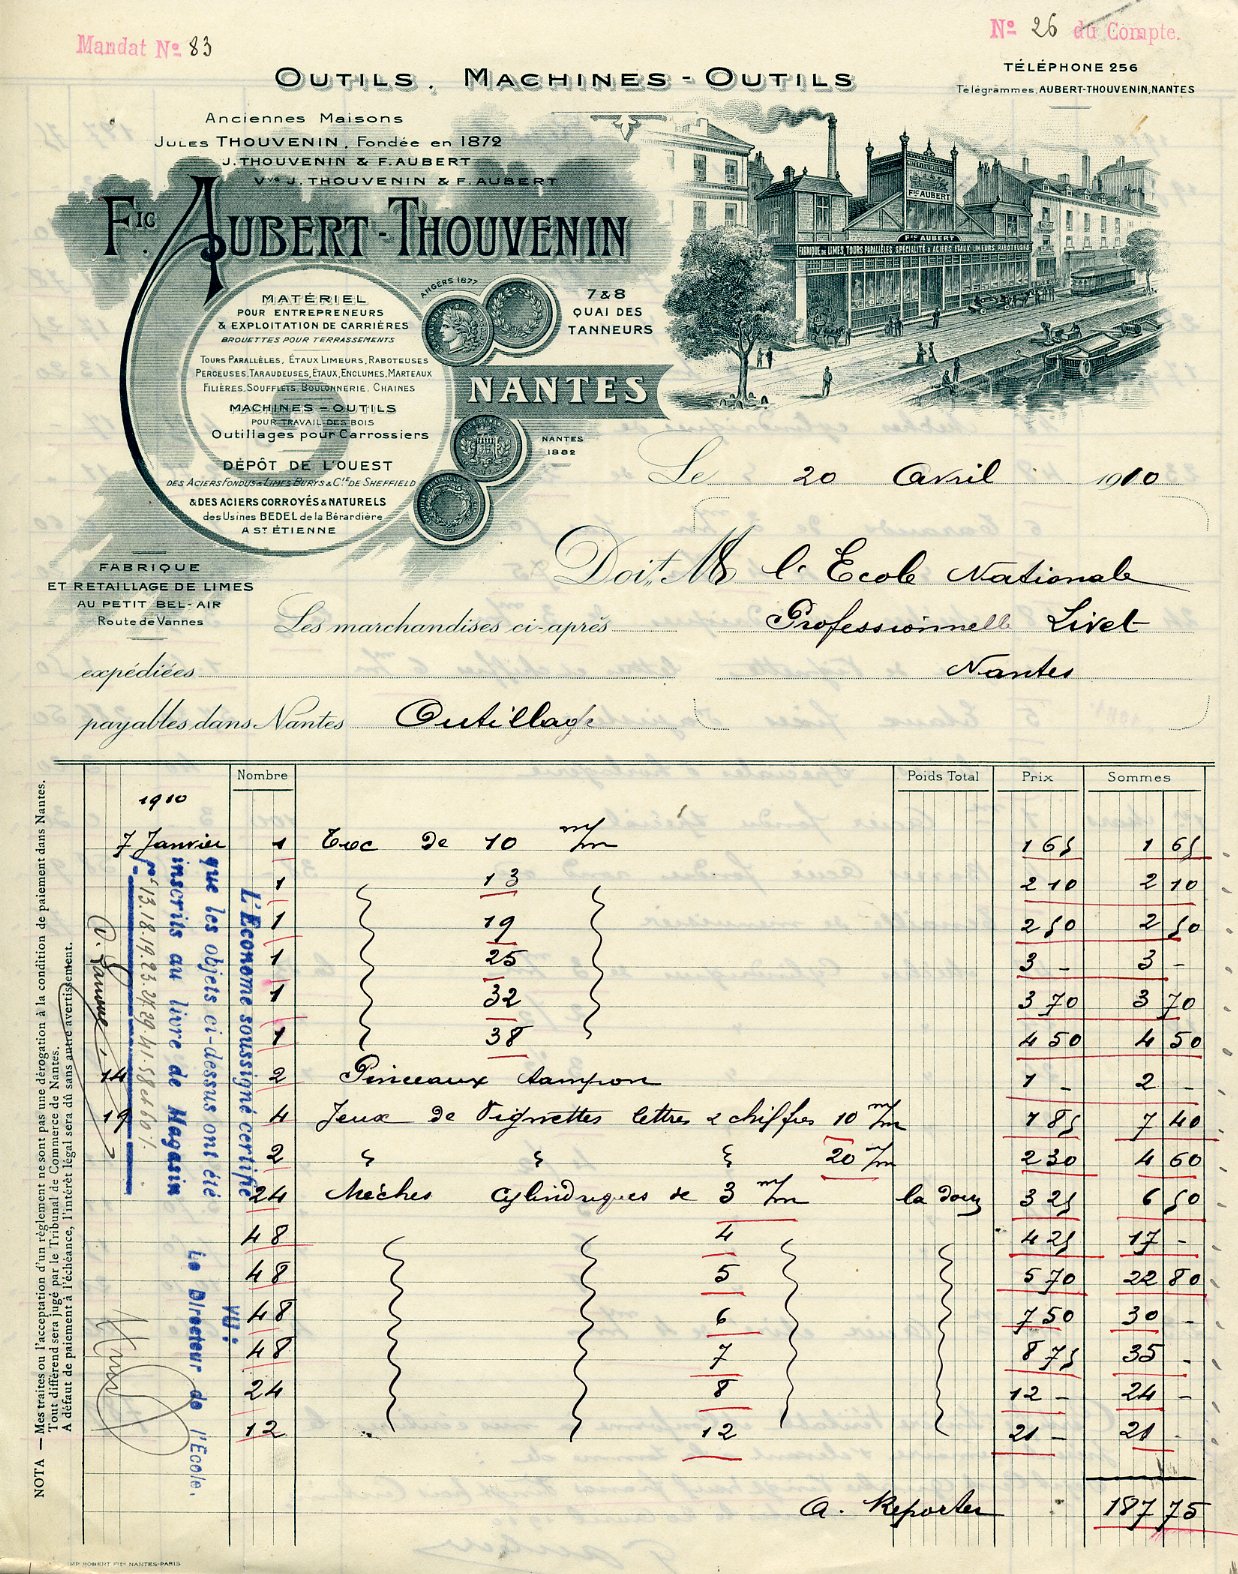 Mandat No 83
No 26 du Compte.
OUTILS, MACHINES-OUTILS
TÉLÉPHONE 256
Télégrammes, AUBERT-THOUVENIN, NANTES
Anciennes Maisons
JULES THOUVENIN, Fondée en 1872
J. THOUVENIN & F. AUBERT
Vve J. THOUVENIN & F. AUBERT
FIC AUBERT-THOUVENIN
Fic AUBERT
Fic AUBERT
FABRIQUE DE LIMES, TOURS PARALLÈLES SPÉCIALITÉ D'ACIERS ÉTAUX LIMEURS RABOTEUSES
MATÉRIEL
POUR ENTREPRENEURS
& EXPLOITATION DE CARRIÈRES
BROUETTES POUR TERRASSEMENTS
TOURS PARALLÈLES, ÉTAUX LIMEURS, RABOTEUSES
PERCEUSES, TARAUDEUSES, ÉTAUX, ENCLUMES, MARTEAUX
FILIÈRES, SOUFFLETS, BOULONNERIE, CHAINES
MACHINES-OUTILS
POUR TRAVAIL DES BOIS
Outillages pour Carrossiers
DÉPÔT DE L'OUEST
DES ACIERS FONDUS & LIMES BURYS & Cie DE SHEFFIELD
& DES ACIERS CORROYÉS & NATURELS
des Usines BEDEL de la Bérardière
A ST ÉTIENNE
ANGERS 1877
7 & 8
QUAI DES
TANNEURS
NANTES
NANTES
1882
Le 20 Avril 1910
FABRIQUE
ET RETAILLAGE DE LIMES
AU PETIT BEL-AIR
Route de Vannes
Doit M l'Ecole Nationale
Professionnelle Livet
Nantes
Les marchandises ci-après
expédiées
payables dans Nantes Outillage
Nombre Poids Total Prix Sommes
1910
7 Janvier 1 Toc de 10 m/m 1 65 1 65
1 13 2 10 2 10
1 19 2 50 2 50
1 25 3 - 3 -
1 32 3 70 3 70
1 38 4 50 4 50
14 2 Pinceaux tampon 1 - 2 -
19 4 Jeux de Vignettes lettres & chiffres 10 m/m 1 85 7 40
2 " " " 20 m/m 2 30 4 60
24 Mèches cylindriques de 3 m/m la douz 3 25 6 50
48 4 4 25 17 -
48 5 5 70 22 80
48 6 7 50 30 -
48 7 8 75 35 -
24 8 12 - 24 -
12 12 21 - 21 -
A. Reporter 187 75
L'Econome soussigné certifie
que les objets ci-dessus ont été
inscrits au livre de Magasin
VU:
Le Directeur de l'Ecole.
NOTA — Mes traites ou l'acceptation d'un règlement ne sont pas une dérogation à la condition de paiement dans Nantes.
Tout différend sera jugé par le Tribunal de Commerce de Nantes.
A défaut de paiement à l'échéance, l'intérêt légal sera dû sans autre avertissement.
IMP. ROBERT Fres NANTES-PARIS